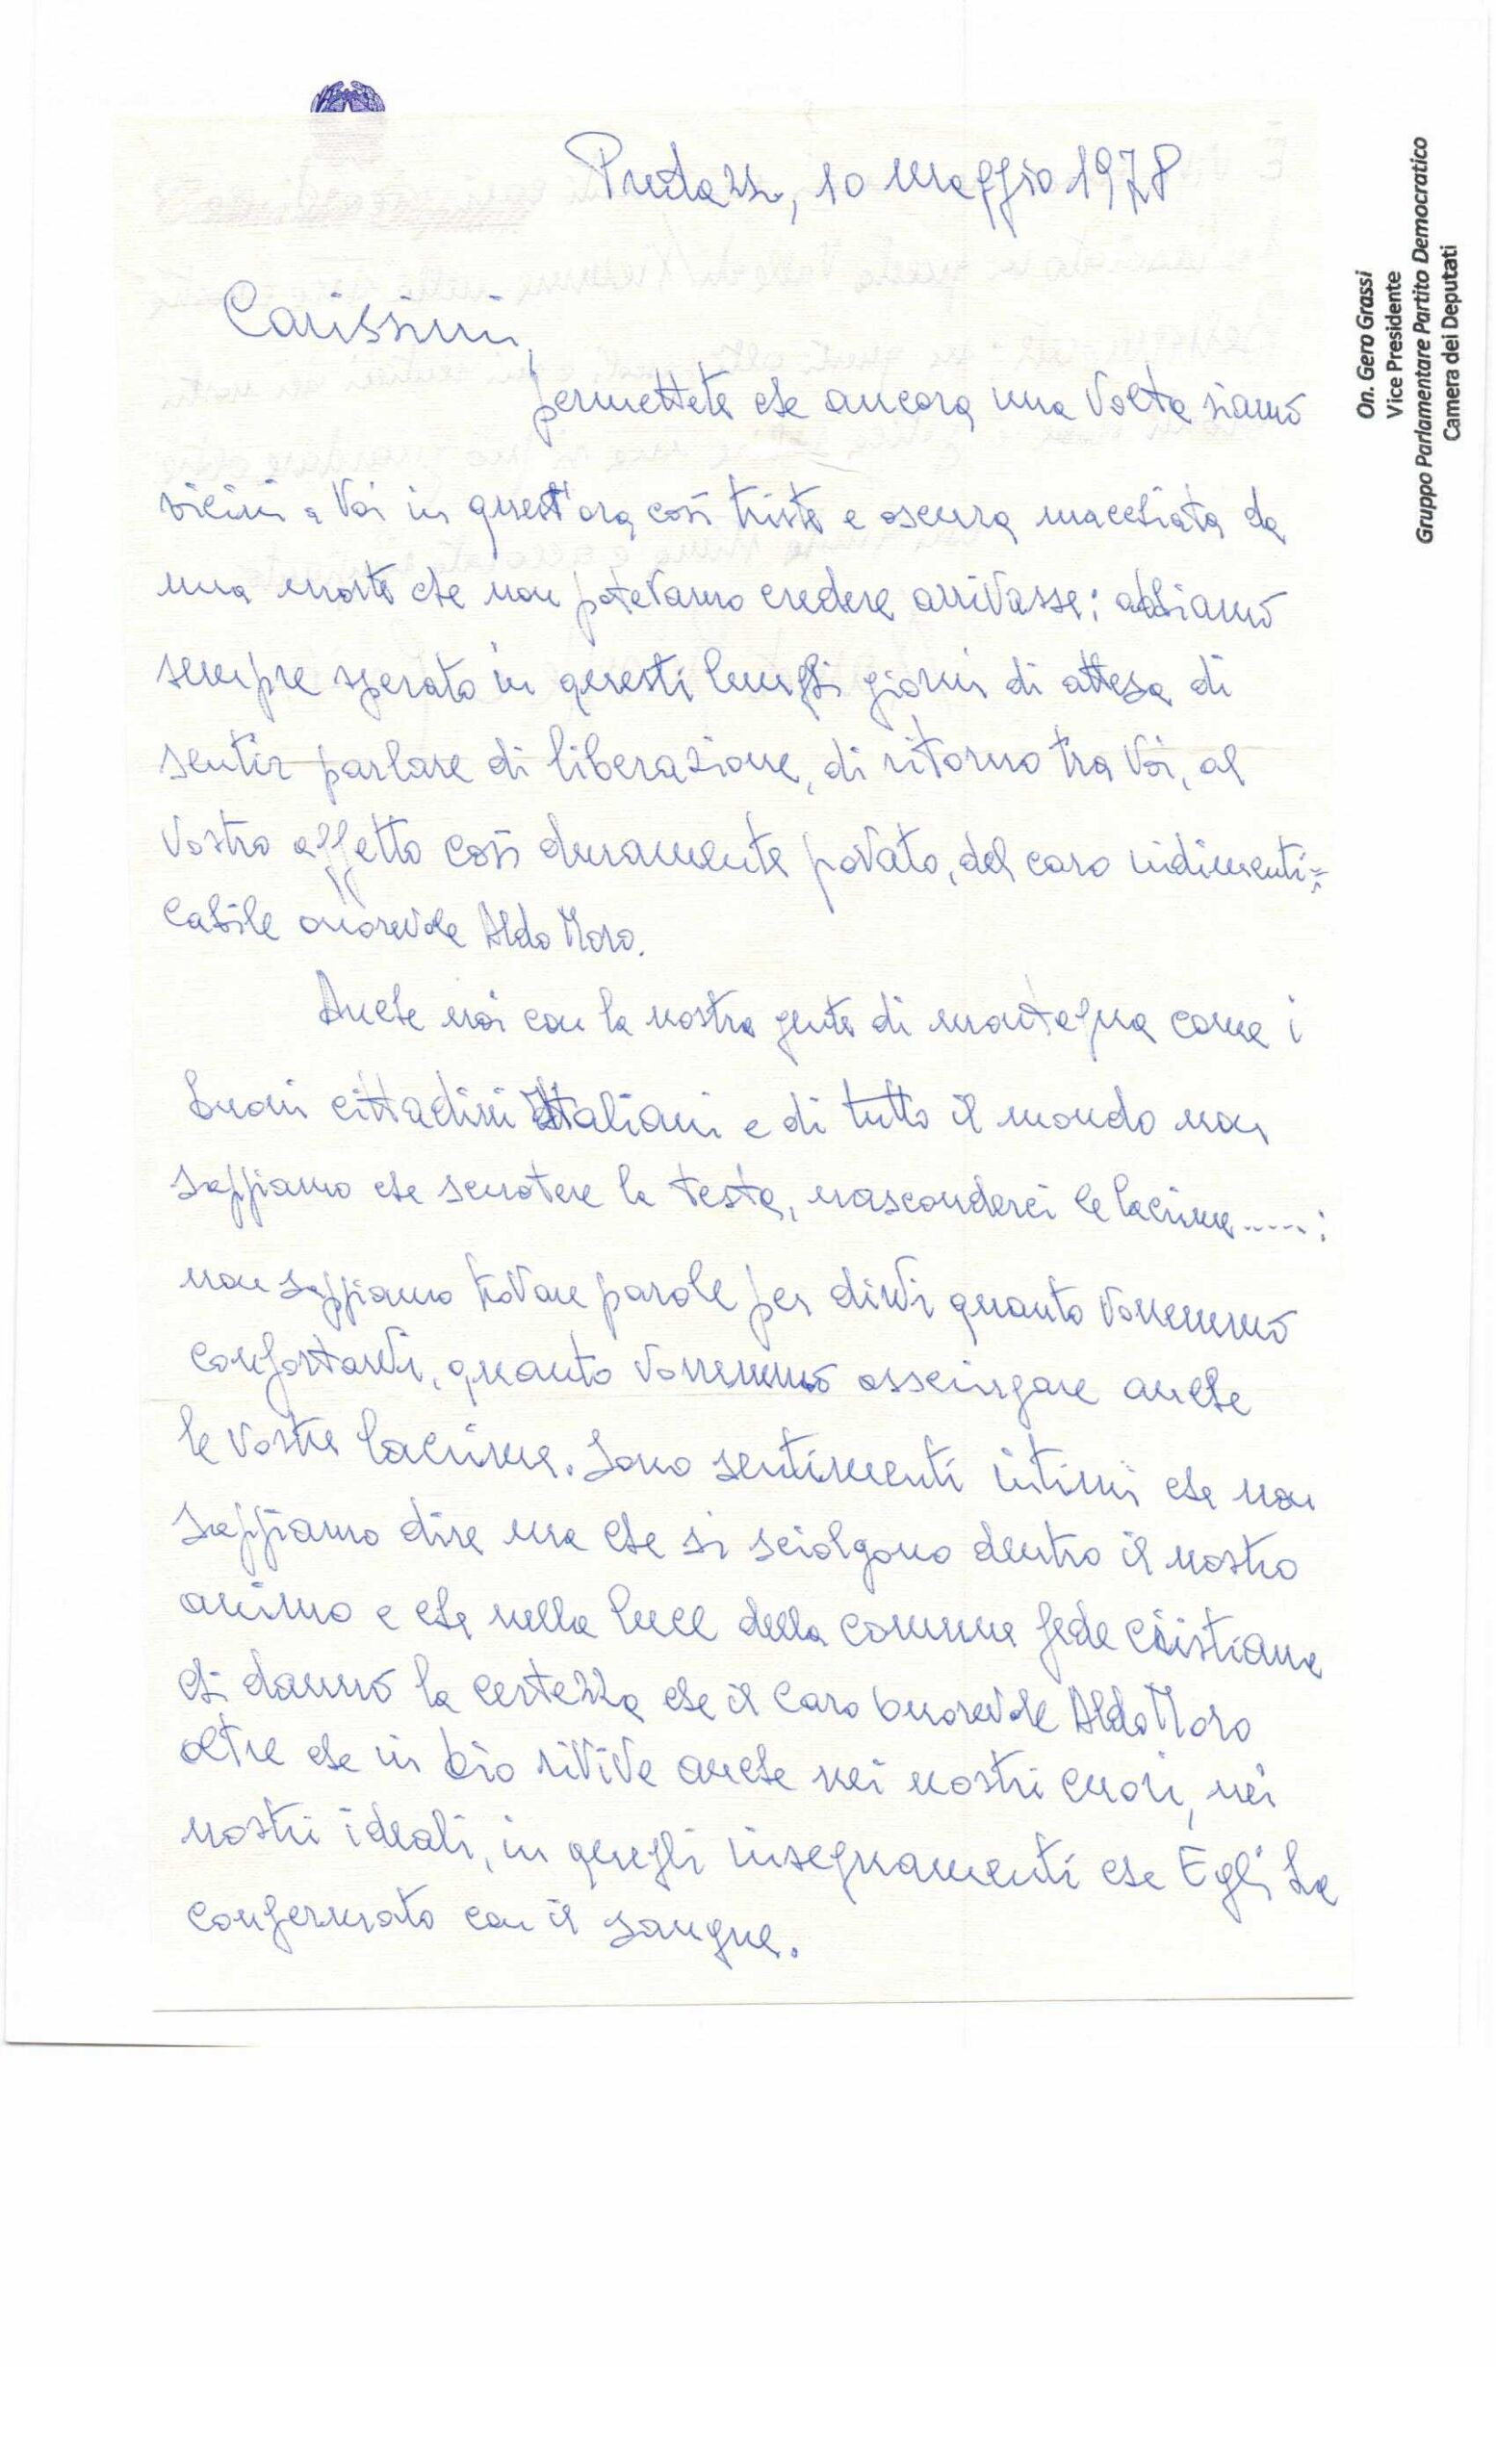 Predazzo, 10 maggio 1978
Carissimi,
permettete che ancora una Volta siamo
vicini a Voi in quest'ora così triste e oscura macchiata da
una morte che non potevamo credere arrivasse: abbiamo
sempre sperato in questi lunghi giorni di attesa di
sentir parlare di liberazione, di ritorno tra Voi, al
Vostro affetto così duramente provato, del caro indimenti=
cabile onorevole Aldo Moro.
Anche noi con la nostra gente di montagna come i
buoni cittadini Italiani e di tutto il mondo non
sappiamo che scuotere la testa, nasconderci le lacrime.....:
non sappiamo trovare parole per dirVi quanto Vorremmo
confortarVi, quanto Vorremmo asciugare anche
le Vostre lacrime. Sono sentimenti intimi che non
sappiamo dire ma che si sciolgono dentro il nostro
animo e che nella luce della comune fede cristiana
ci danno la certezza che il caro Onorevole Aldo Moro
oltre che in Dio rivive anche nei nostri cuori, nei
nostri ideali, in quegli insegnamenti che Egli ha
confermato con il sangue.
On. Gero Grassi
Vice Presidente
Gruppo Parlamentare Partito Democratico
Camera dei Deputati